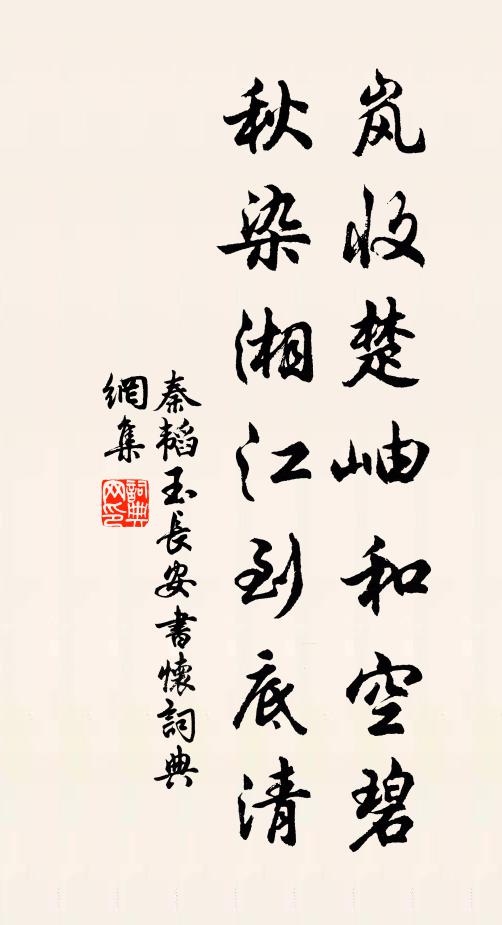 岚收楚岫和空碧
秋染湘江到底清
秦韬玉長安書懷詞典
網集
詞典网印